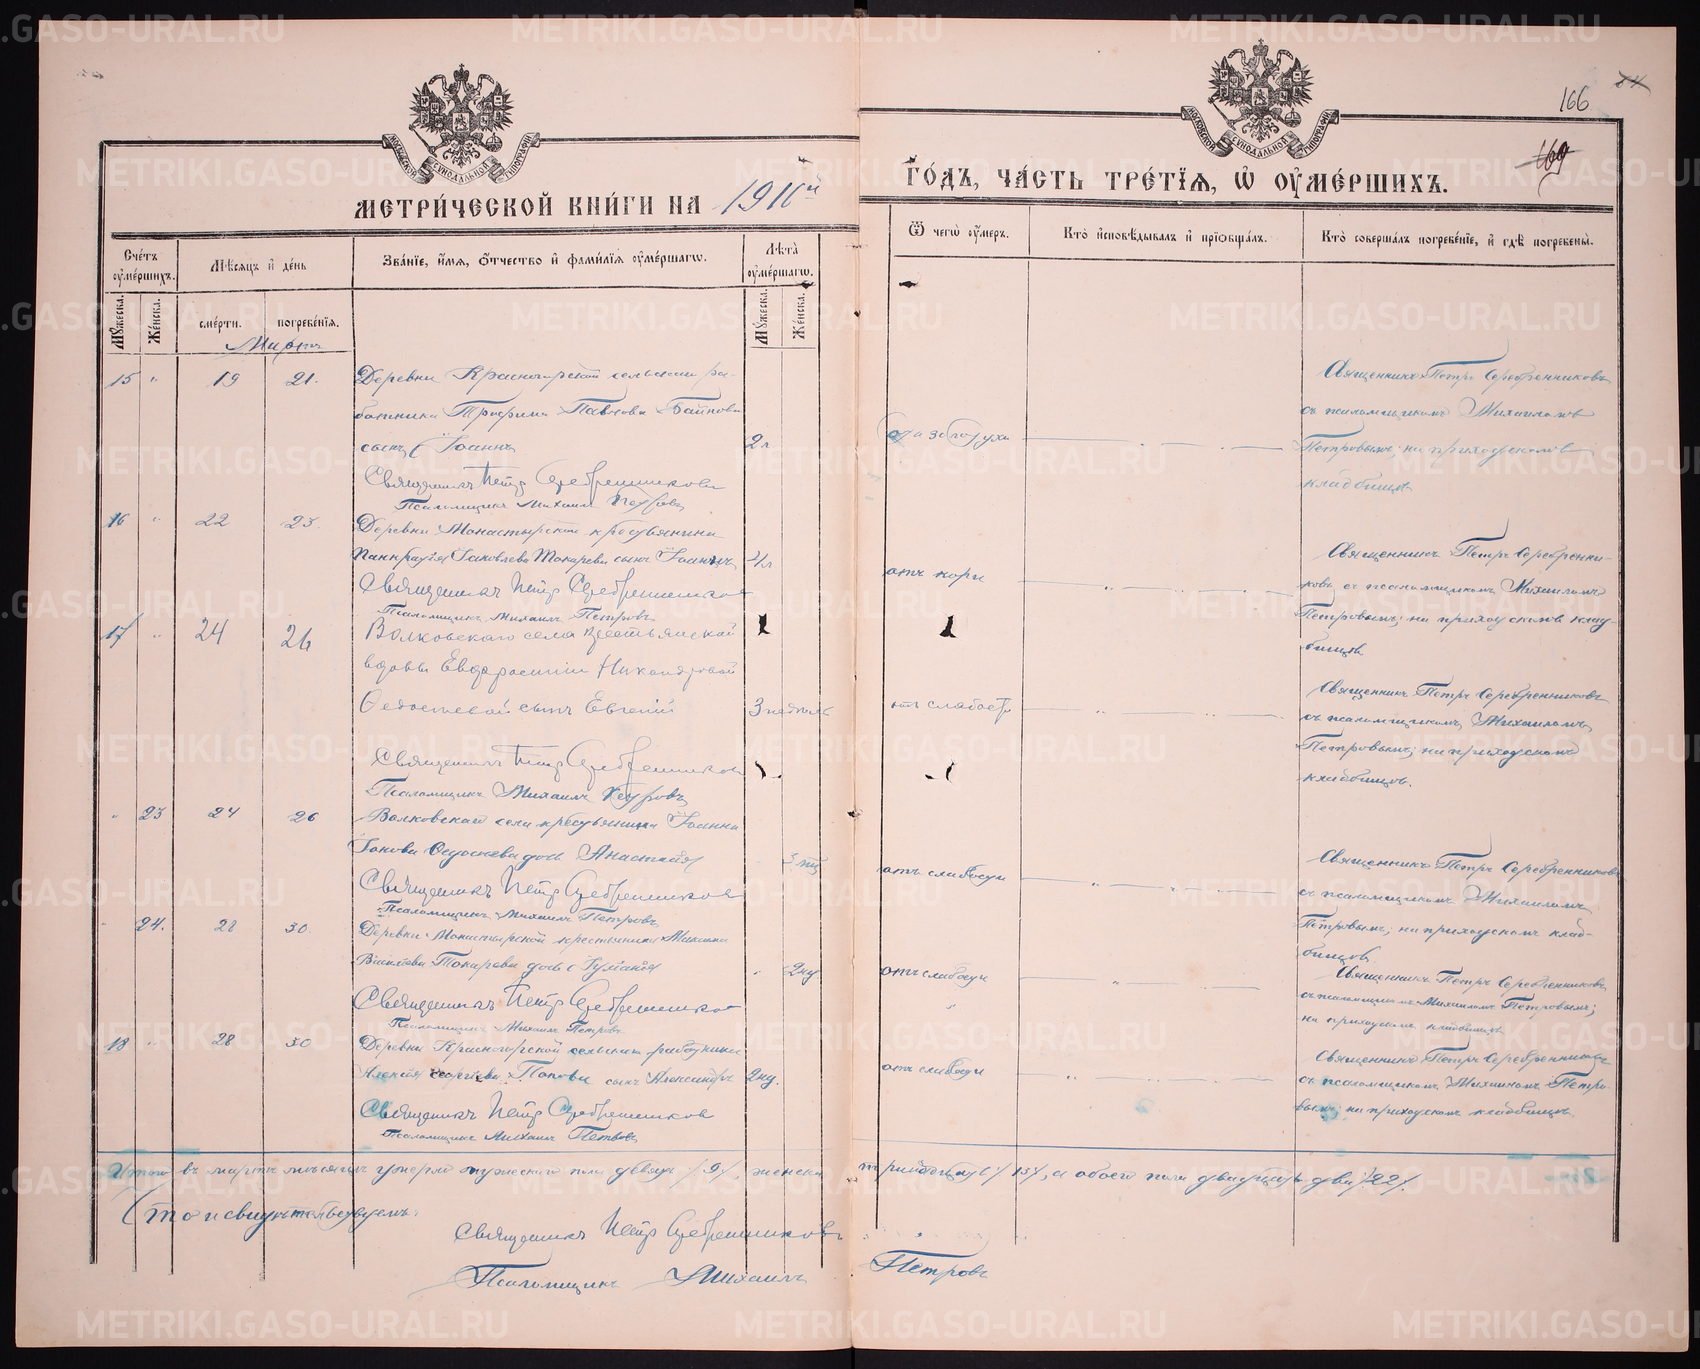 166
169
МЕТРИЧЕСКОЙ КНИГИ НА 1911й ГОДЪ, ЧАСТЬ ТРЕТІЯ, Ѿ ОУМЕРШИХЪ.
МОСКОВСКОЙ СУНОДАЛЬНОЙ ТИПОГРАФІИ
МОСКОВСКОЙ СУНОДАЛЬНОЙ ТИПОГРАФІИ
Счетъ оумершихъ.
Мѣсяцъ и день
Званіе, имя, отчество и фамилія оумершагѡ.
Лѣта оумершагѡ.
Ѿ чегѡ оумеръ.
Кто исповѣдывалъ и пріобщалъ.
Кто совершалъ погребеніе, и гдѣ погребены.
Мужеска.
Женска.
смерти.
погребенія.
Мужеска.
Женска.
Мартъ
15 " 19 21.
Деревни Красногорской сельскаго ра-
ботника Трофима Павлова Баинова
сынъ Іоаннъ
2 л
Священникъ Петръ Серебренниковъ
съ псаломщикомъ Михаиломъ
Петровымъ; на приходскомъ
кладбищѣ
Священникъ Петръ Серебренниковъ
Псаломщикъ Михаилъ Петровъ
16 " 22 23.
Деревни Монастырской крестьянина
Панкратія Іаковлева Токарева сынъ Іоаннъ
отъ кори
Священникъ Петръ Серебренни-
ковъ съ псаломщикомъ Михаиломъ
Петровымъ; на приходскомъ клад-
бищѣ
Священникъ Петръ Серебренниковъ
Псаломщикъ Михаилъ Петровъ
17 " 24 26
Волковскаго села крестьянской
вдовы Евфросиніи Никандровой
Федосѣевой сынъ Евгеній
3 недѣль
отъ слабости
Священникъ Петръ Серебренниковъ
съ псаломщикомъ Михаиломъ
Петровымъ; на приходскомъ
кладбищѣ.
Священникъ Петръ Серебренниковъ
Псаломщикъ Михаилъ Петровъ
" 23 24 26
Волковскаго села крестьянина Іоанна
Федосѣева дочь Анастасія
отъ слабости
Священникъ Петръ Серебренниковъ
съ псаломщикомъ Михаиломъ
Петровымъ; на приходскомъ клад-
бищѣ.
Священникъ Петръ Серебренниковъ
Псаломщикъ Михаилъ Петровъ
24. 28 30
Деревни Монастырской крестьянина
Токарева дочь
" 2 нд
отъ слабости
Священникъ Петръ Серебренниковъ
съ псаломщикомъ Михаиломъ Петровымъ;
на приходскомъ кладбищѣ
Священникъ Петръ Серебренниковъ
Псаломщикъ Михаилъ Петровъ
18 " 28 30
Деревни Красногорской сельскаго работника
Алексѣя Георгіева Попова сынъ Александръ
2 нд.
отъ слабости
Священникъ Петръ Серебренниковъ
съ псаломщикомъ Михаиломъ Петро-
вымъ; на приходскомъ кладбищѣ
Священникъ Петръ Серебренниковъ
Псаломщикъ Михаилъ Петровъ
Итого въ мартѣ мѣсяцѣ умерло мужескаго пола девять /9/, женска тринадцать /13/, а обоего пола двадцать два /22/.
Въ томъ и свидѣтельствуемъ:
Священникъ Петръ Серебренниковъ
Псаломщикъ Михаилъ Петровъ
METRIKI.GASO-URAL.RU